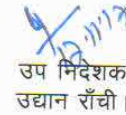 उप निदेशक
उद्यान राँची।